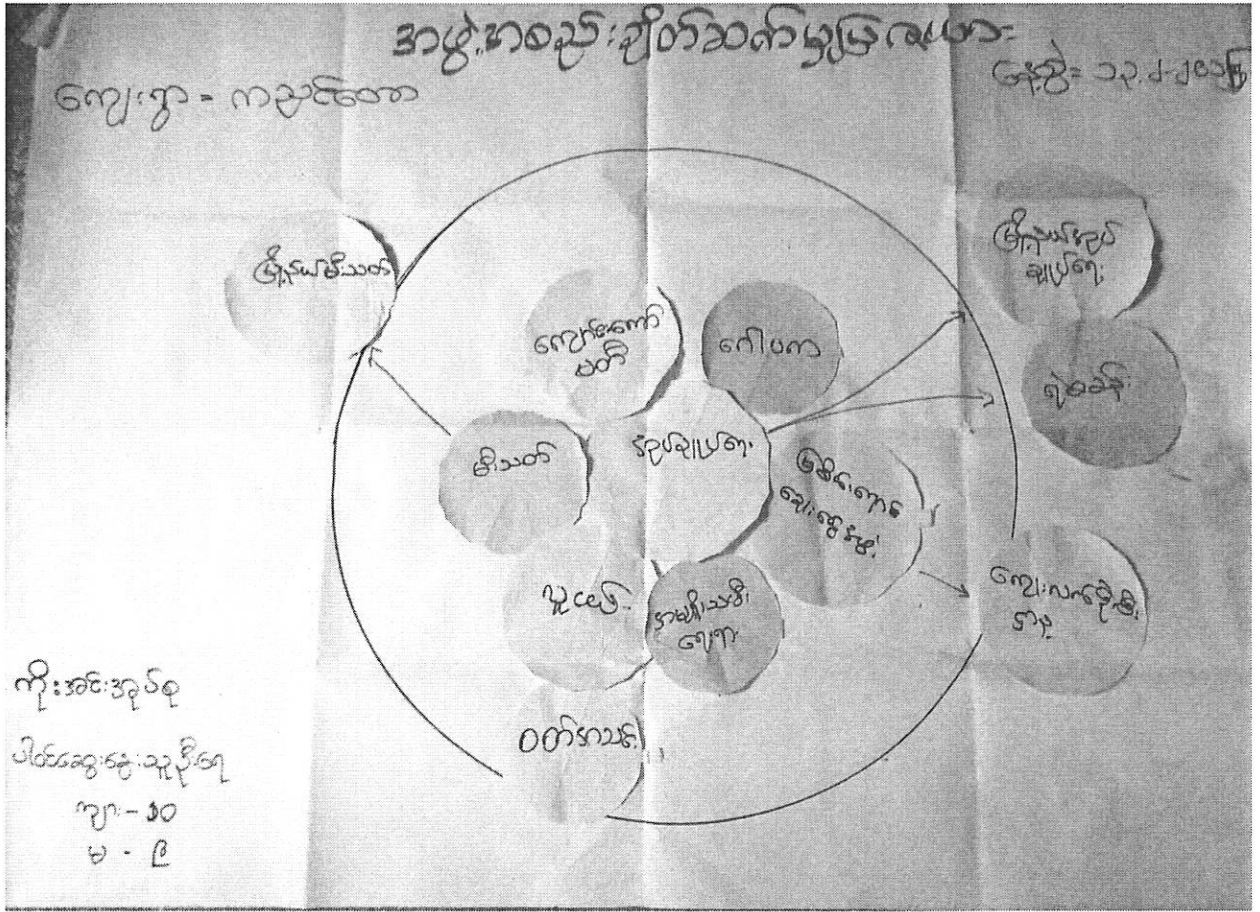 အဖွဲ့အစည်းချိတ်ဆက်မှုပြ
ကျေးရွာ = ကညင်တော
နေ့စွဲ =
မြို့နယ်မီးသတ်
မြို့နယ်အုပ်
ချုပ်ရေး
ကျောင်းကော်
မတီ
ဂေါပက
ရဲစခန်း
မီးသတ်
အုပ်ချုပ်ရေး
မြစိမ်းရောင်
ချေးငွေအဖွဲ့
ကျေးလက်ဖွံ့ဖြိုး
ဌာန
လူငယ်
အမျိုးသမီး
ရေးရာ
ဝတ်အသင်း
ကိုးအင်းအုပ်စု
ပါဝင်ဆွေးနွေးသူဦးရေ
ကျား - ၁၀
မ - ၉